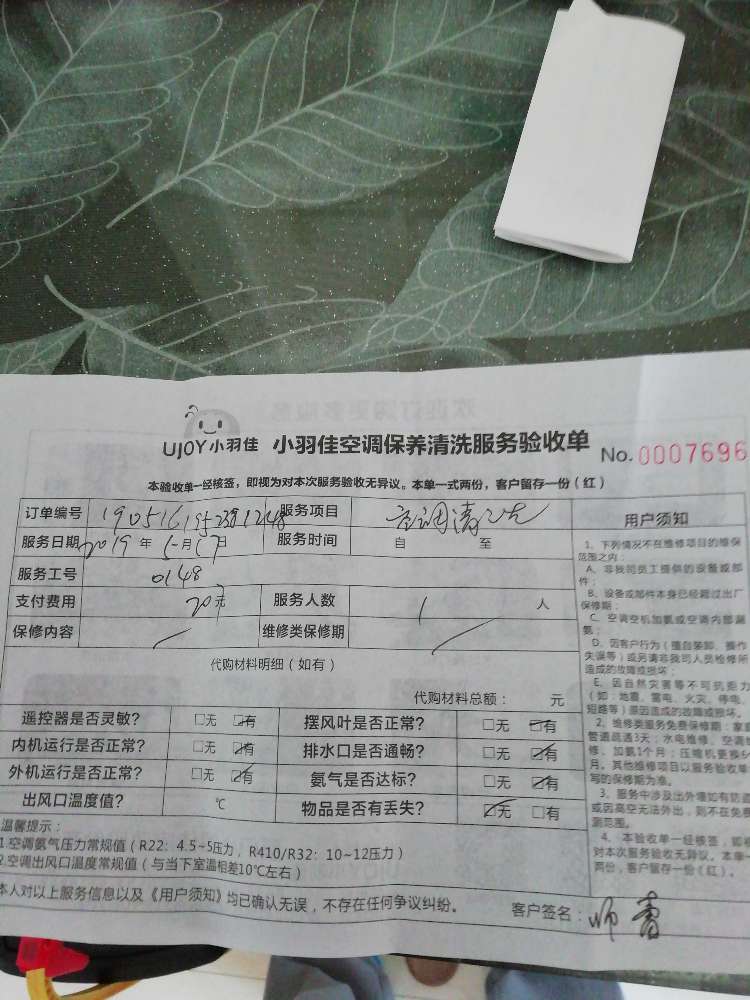 UJOY小羽佳 小羽佳空调保养清洗服务验收单 No.0007696
本验收单一经核签，即视为对本次服务验收无异议。本单一式两份，客户留存一份（红）
订单编号 服务项目 空调清洗
服务日期 2019年5月17日 服务时间 自 至
服务工号 0148
支付费用 20元 服务人数 1 人
保修内容 / 维修类保修期 /
代购材料明细（如有）
代购材料总额： 元
遥控器是否灵敏？ □无 ☑有 摆风叶是否正常？ □无 ☑有
内机运行是否正常？ □无 ☑有 排水口是否通畅？ □无 ☑有
外机运行是否正常？ □无 ☑有 氨气是否达标？ □无 ☑有
出风口温度值？ ℃ 物品是否有丢失？ ☑无 □有
温馨提示：
1.空调氨气压力常规值（R22：4.5~5压力，R410/R32：10~12压力）
2.空调出风口温度常规值（与当下室温相差10℃左右）
本人对以上服务信息以及《用户须知》均已确认无误，不存在任何争议纠纷。 客户签名：
用户须知
1、下列情况不在维修项目的维保
范围之内：
A、非我司员工提供的设备或部
件；
B、设备或部件本身已经超过出厂
保修期；
C、空调空机加氨或空调内部漏
氨；
D、因客户行为（擅自装卸、操作
失误等）或另请非我司人员检修所
造成的故障或损坏；
E、因自然灾害等不可抗拒力
（如：地震、雷电、火灾、停电、
短路等）原因造成的故障或损坏。
2、维修类服务免费保修期：家庭
管道疏通3天；水电维修、空调维
修、加氨1个月；压缩机更换
月。其他维修项目以服务验收单
写的保修期为准。
3、服务中涉及出外墙如有防盗
或因高空无法外出，则不在免费
测范围。
4、本验收单一经核签，即视
对本次服务验收无异议。本单一
两份，客户留存一份（红）。